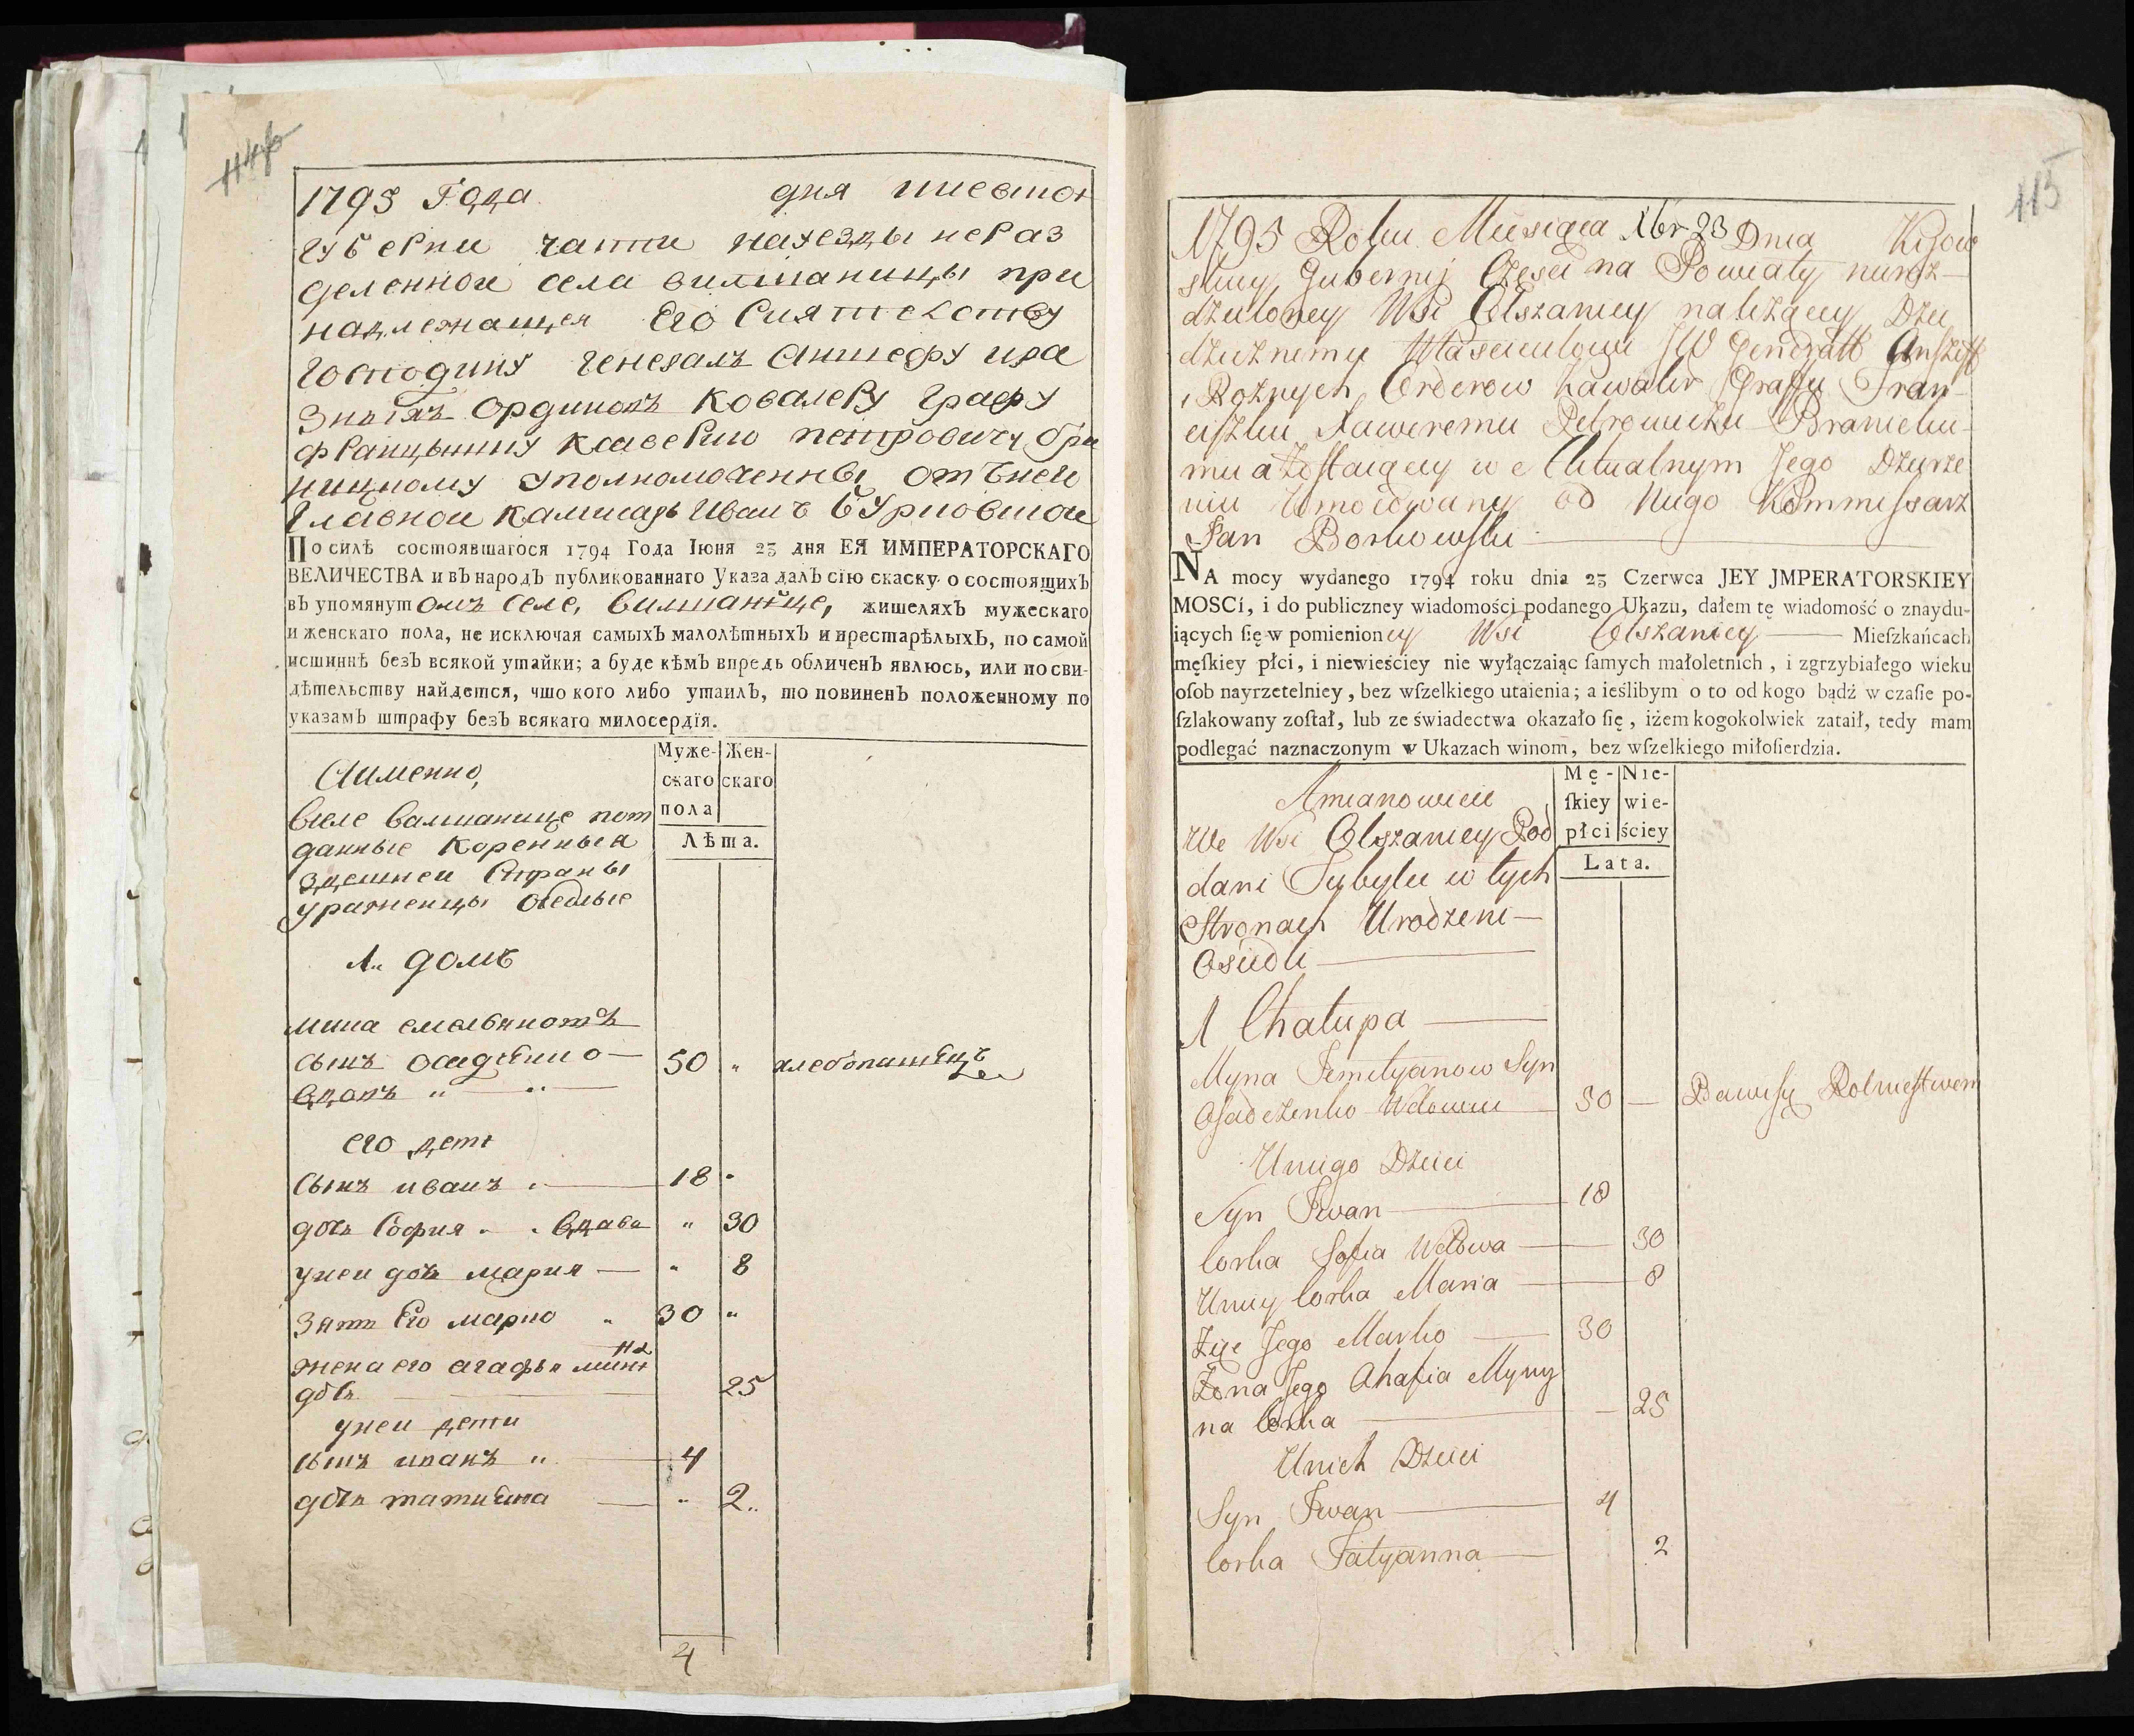 114об
1795 Года дня киевской
губерни части науезды нераз
деленной села вилшаницы при
надлежащея Его Сиятелству
Господину Генералъ Аншефу ира
знихъ Ординовъ Ковалеру Графу
францышку Ксаверию петровичу бра
ницкому уполномоченны отънего
Главной камисаръ Иванъ
ПО силѣ состоявшагося 1794 Года Іюня 23 дня ЕЯ ИМПЕРАТОРСКАГО
ВЕЛИЧЕСТВА и въ народъ публикованнаго Указа далъ сію скаску о состоящихъ
въ упомянутомъ селе, вилшанице, жителяхъ мужескаго
и женскаго пола, не исключая самыхъ малолѣтныхъ и престарѣлыхъ, по самой
истиннѣ безъ всякой утайки; а буде кѣмъ впредь обличенъ явлюсь, или по сви-
дѣтельству найдется, что кого либо утаилъ, то повиненъ положенному по
указамъ штрафу безъ всякаго милосердія.
Муже- Жен-
скаго скаго
пола
Лѣта.
Аименно,
вселе валшанице пот
данные коренныя
здешней Страны
уроженцы оседлые
1. домъ
мина емельяновъ
сынъ осадченко 50 " хлебопашецъ
вдовъ " "
его дети
сынъ иванъ 18 "
дочь София вдава " 30
унеи дочь мария " 8
Зять Его марко 30 "
жена его агафья мини
на
дочь 25
унеи дети
сынъ иванъ " 4
дочь татияна " 2
4
115
1795 Roku Miesiąca Xbr 23 Dnia Kijow
skiey Gubernij Częsci na Powiaty nieroz
dzieloney Wsi Olszanicy należącey Dzie
dzicznemu Włascicielowi JW Generałł Anszeff
i Rożnych Orderow Kawaler Graffu Fran
ciszku Xaweremu Petrowiczu Branickie
mu a zostaiącey w Aktualnym Jego Dzierże
niu Umocowany od Niego Kommissarz
Jan Borkowski
NA mocy wydanego 1794 roku dnia 23 Czerwca JEY JMPERATORSKIEY
MOSCí, i do publiczney wiadomości podanego Ukazu, dałem tę wiadomość o znaydu-
iących ſię w pomienioney Wsi Olszanicy Mieſzkańcach
męſkiey płci, i niewieściey nie wyłączaiąc ſamych małoletnich, i zgrzybiałego wieku
oſob nayrzetelniey, bez wſzelkiego utaienia; a ieślibym o to od kogo bądź w czaſie po-
ſzlakowany zoſtał, lub ze świadectwa okazało ſię, iżem kogokolwiek zataił, tedy mam
podlegać naznaczonym w Ukazach winom, bez wſzelkiego miłoſierdzia.
Mę- Nie-
ſkiey wie-
płci ściey
Lata.
Amianowicie
We Wsi Olszanicy Pod
dani Tubylci w tych
Stronach Urodzeni
Osiedli
1 Chałupa
Myna Jemilyanow Syn
Osadczenko Wdowiec 50 — Bawisę Rolnictwem
Uniego Dzieci
Syn Jwan 18
Corka Sofia Wdowa 30
Uniey Corka Maria 8
Zięć Jego Marko 30
Żona Jego Ahafia Myny
na Corka 25
Unich Dzieci
Syn Jwan 4
Corka Tatyanna 2